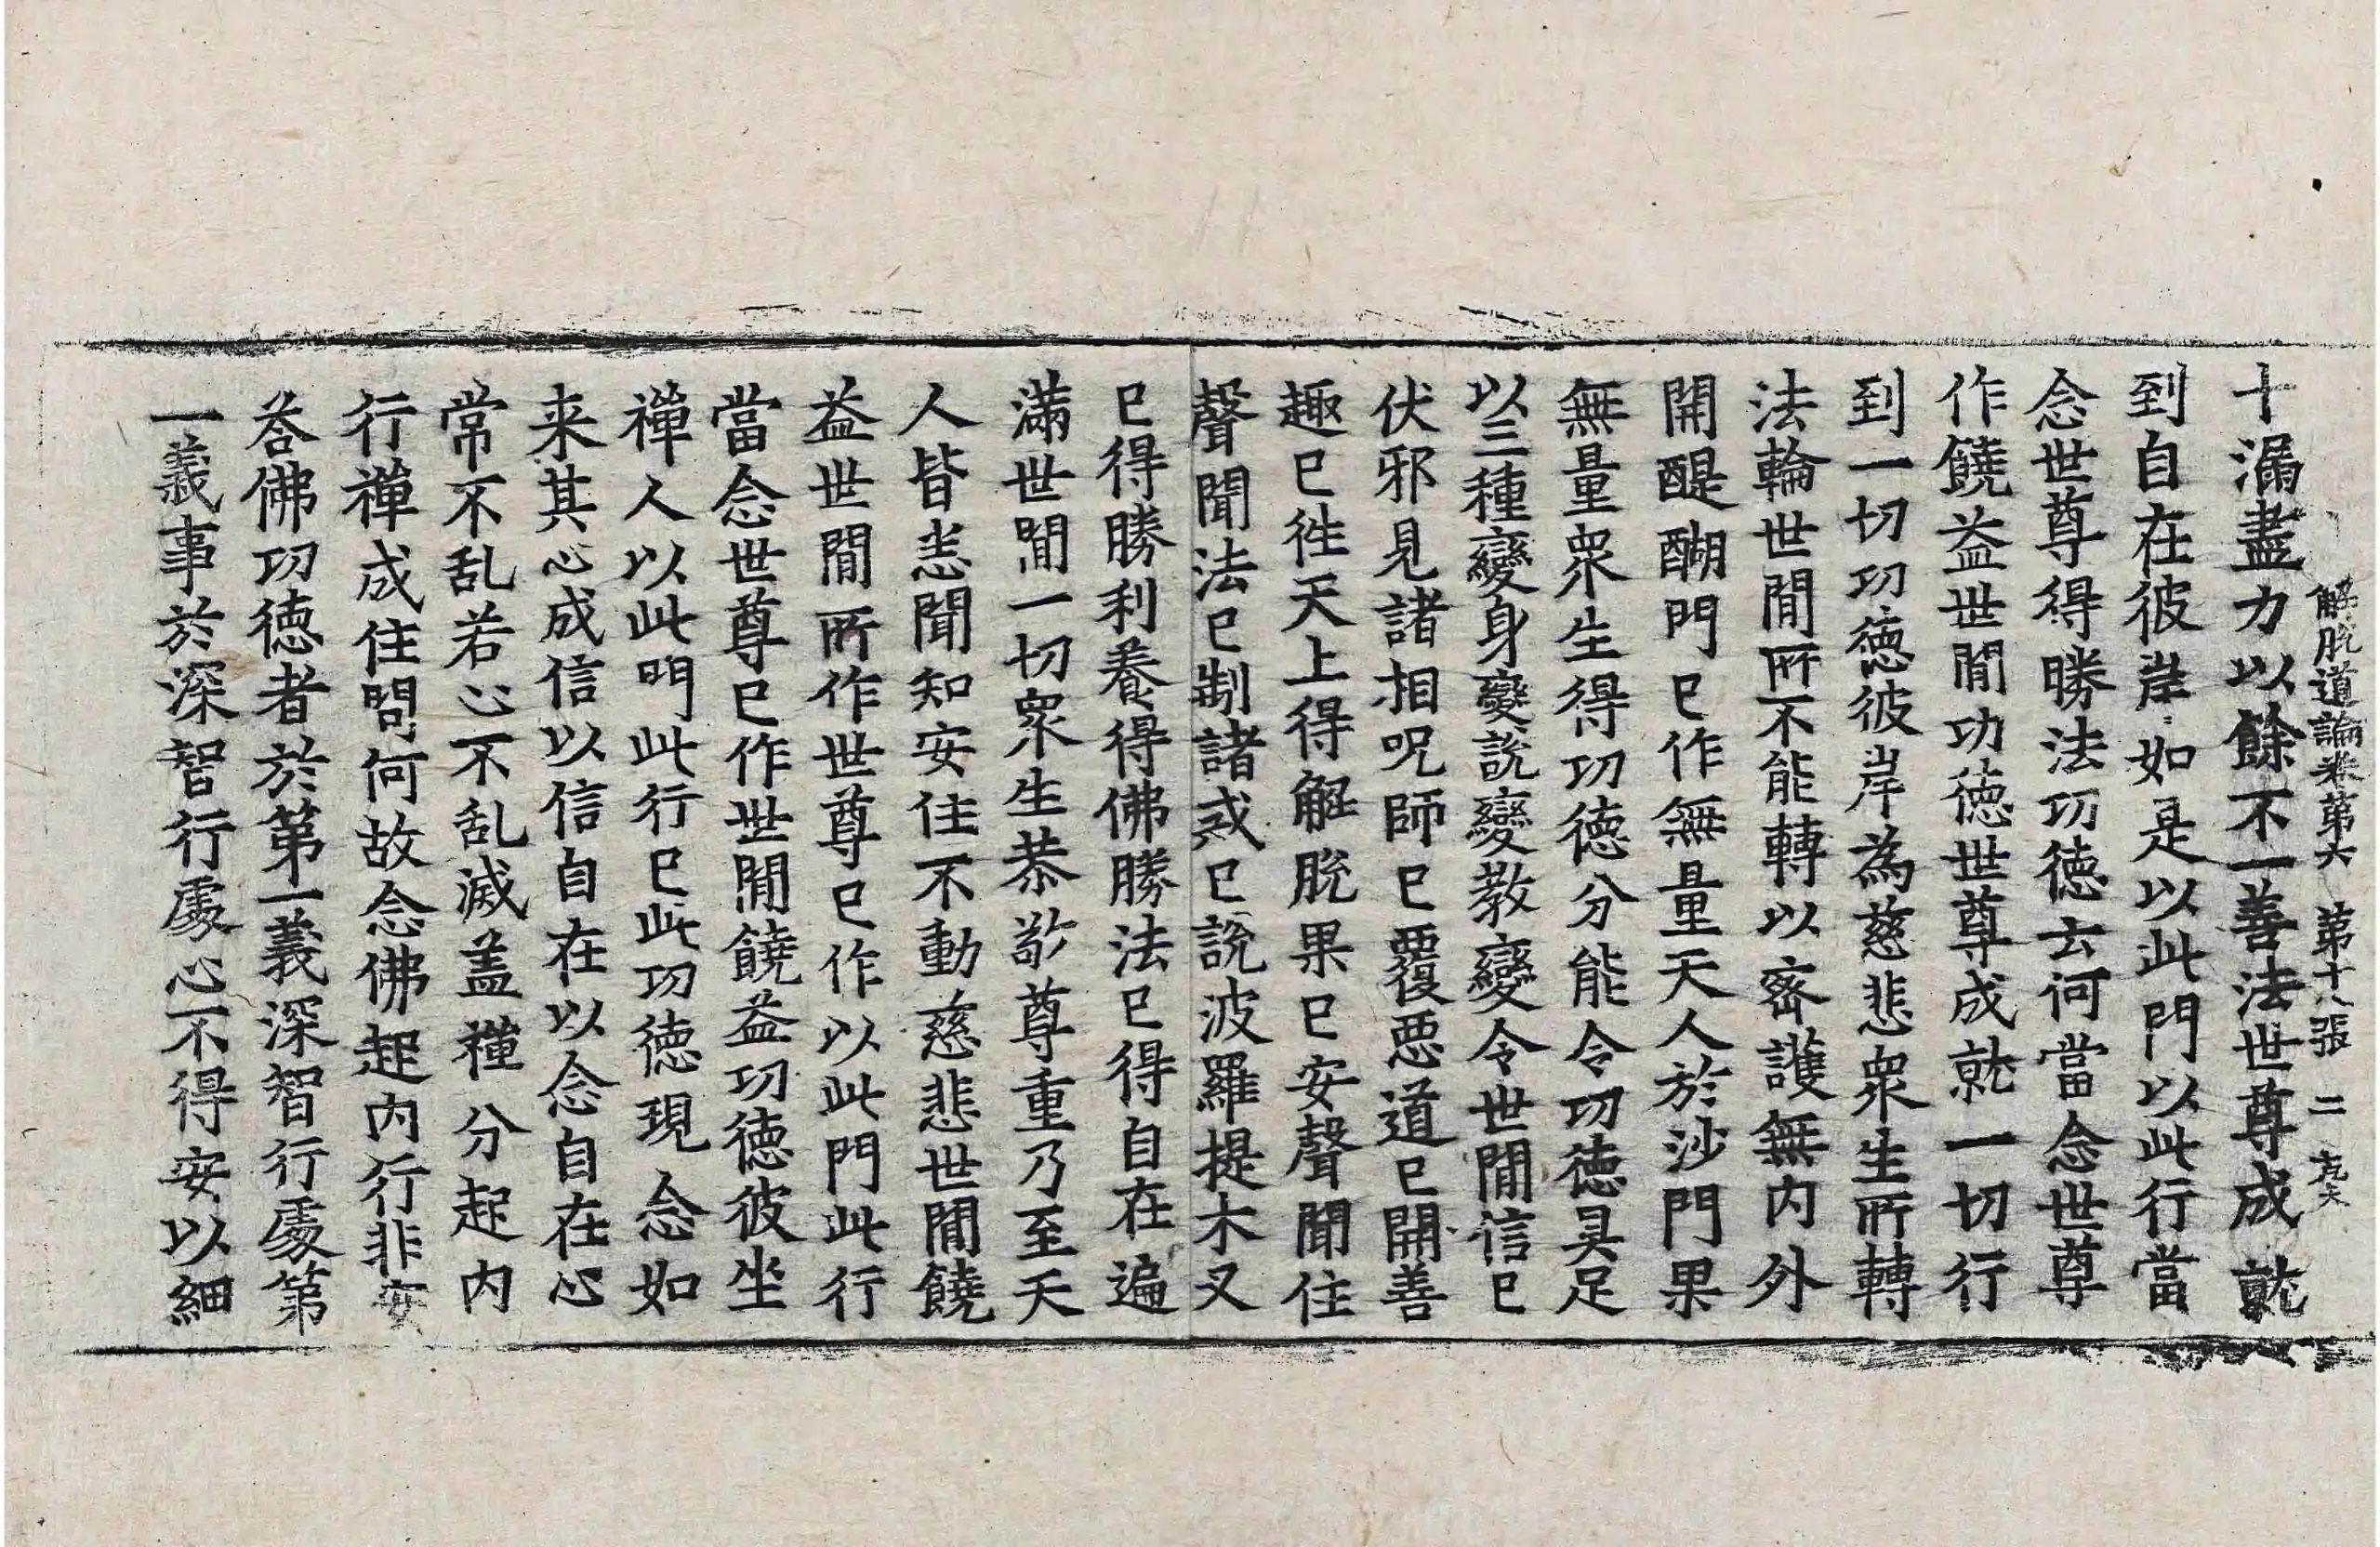 解脫道論卷第六 第十八張 二
十漏盡力以餘不一善法世尊成就
到自在彼岸如是以此門以此行當
念世尊得勝法功德云何當念世尊
作饒益世閒功德世尊成就一切行
到一切功德彼岸為慈悲衆生所轉
法輪世閒所不能轉以密護無內外
開醍醐門已作無量天人於沙門果
無量衆生得功德分能令功德具足
以三種變身變說變教變令世閒信已
伏邪見諸相呪師已覆惡道已開善
趣已徃天上得解脫果已安聲聞住
聲聞法已制諸戒已說波羅提木叉
已得勝利養得佛勝法已得自在遍
滿世閒一切衆生恭敬尊重乃至天
人皆悉聞知安住不動慈悲世閒饒
益世閒所作世尊已作以此門此行
當念世尊已作世閒饒益功德彼坐
禪人以此門此行已此功德現念如
来其心成信以信自在以念自在心
常不乱若心不乱滅盖禪分起內
行禪成住問何故念佛起內行非安
荅佛功德者於第一義深智行處第
一義事於深智行處心不得安以細